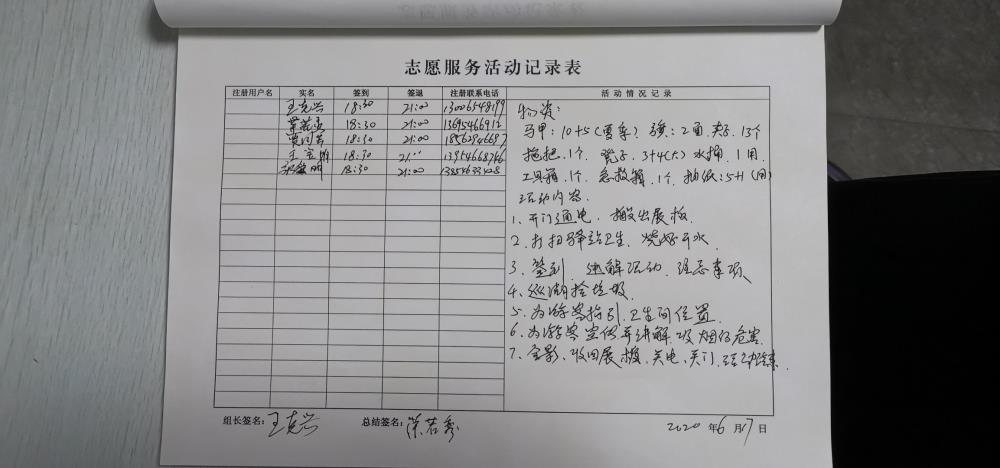 志愿服务活动记录表
注册用户名 实名 签到 签退 注册联系电话 活动情况记录
王克兴 18:30 21:00 13006548199
18:30 21:00 13695466912
18:30 21:00 18562946697
王 18:30 21:00 13954668746
明 18:30 21:00
物资:
马甲:10+5(夏季) 2面 13个
拖把.1个. 凳子.3+4(大) 水桶.1用.
工具箱.1个. 急救箱.1个. 抽纸:5+1(用)
活动内容.
1、开门通电.搬出展板.
2、打扫驿站卫生.烧好开水.
3、签到.讲解活动.注意事项
4、巡湖捡垃圾.
5、为游客指引.卫生间位置.
6、为游客宣传并讲解吸烟的危害.
7、合影.收回展板.关电.关门.活动结束.
组长签名:王克兴 总结签名:荣若秀 2020年6月17日